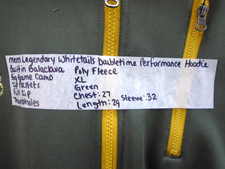 mens Legendary Whitetails Daubletime Performance Hoodie
Built in Balaclava Poly Fleece
Big Game Camo XL
Zip Pockets Green
Full Zip Chest: 27 Sleeve: 32
Thumbholes Length: 29